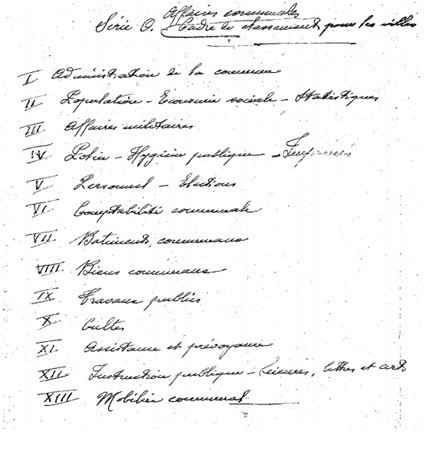 Affaires communales
Série O. Cadre de classement pour les villes
I Administration de la commune
II Population - Economie sociale - Statistiques
III Affaires militaires
IV Police - Hygiène publique -
V Personnel - Elections
VI Comptabilité communale
VII Bâtiments communaux
VIII. Biens communaux
IX Travaux publics
X Cultes
XI. Assistance et prévoyance
XII Instruction publique - Sciences, lettres et arts
XIII Mobilier communal